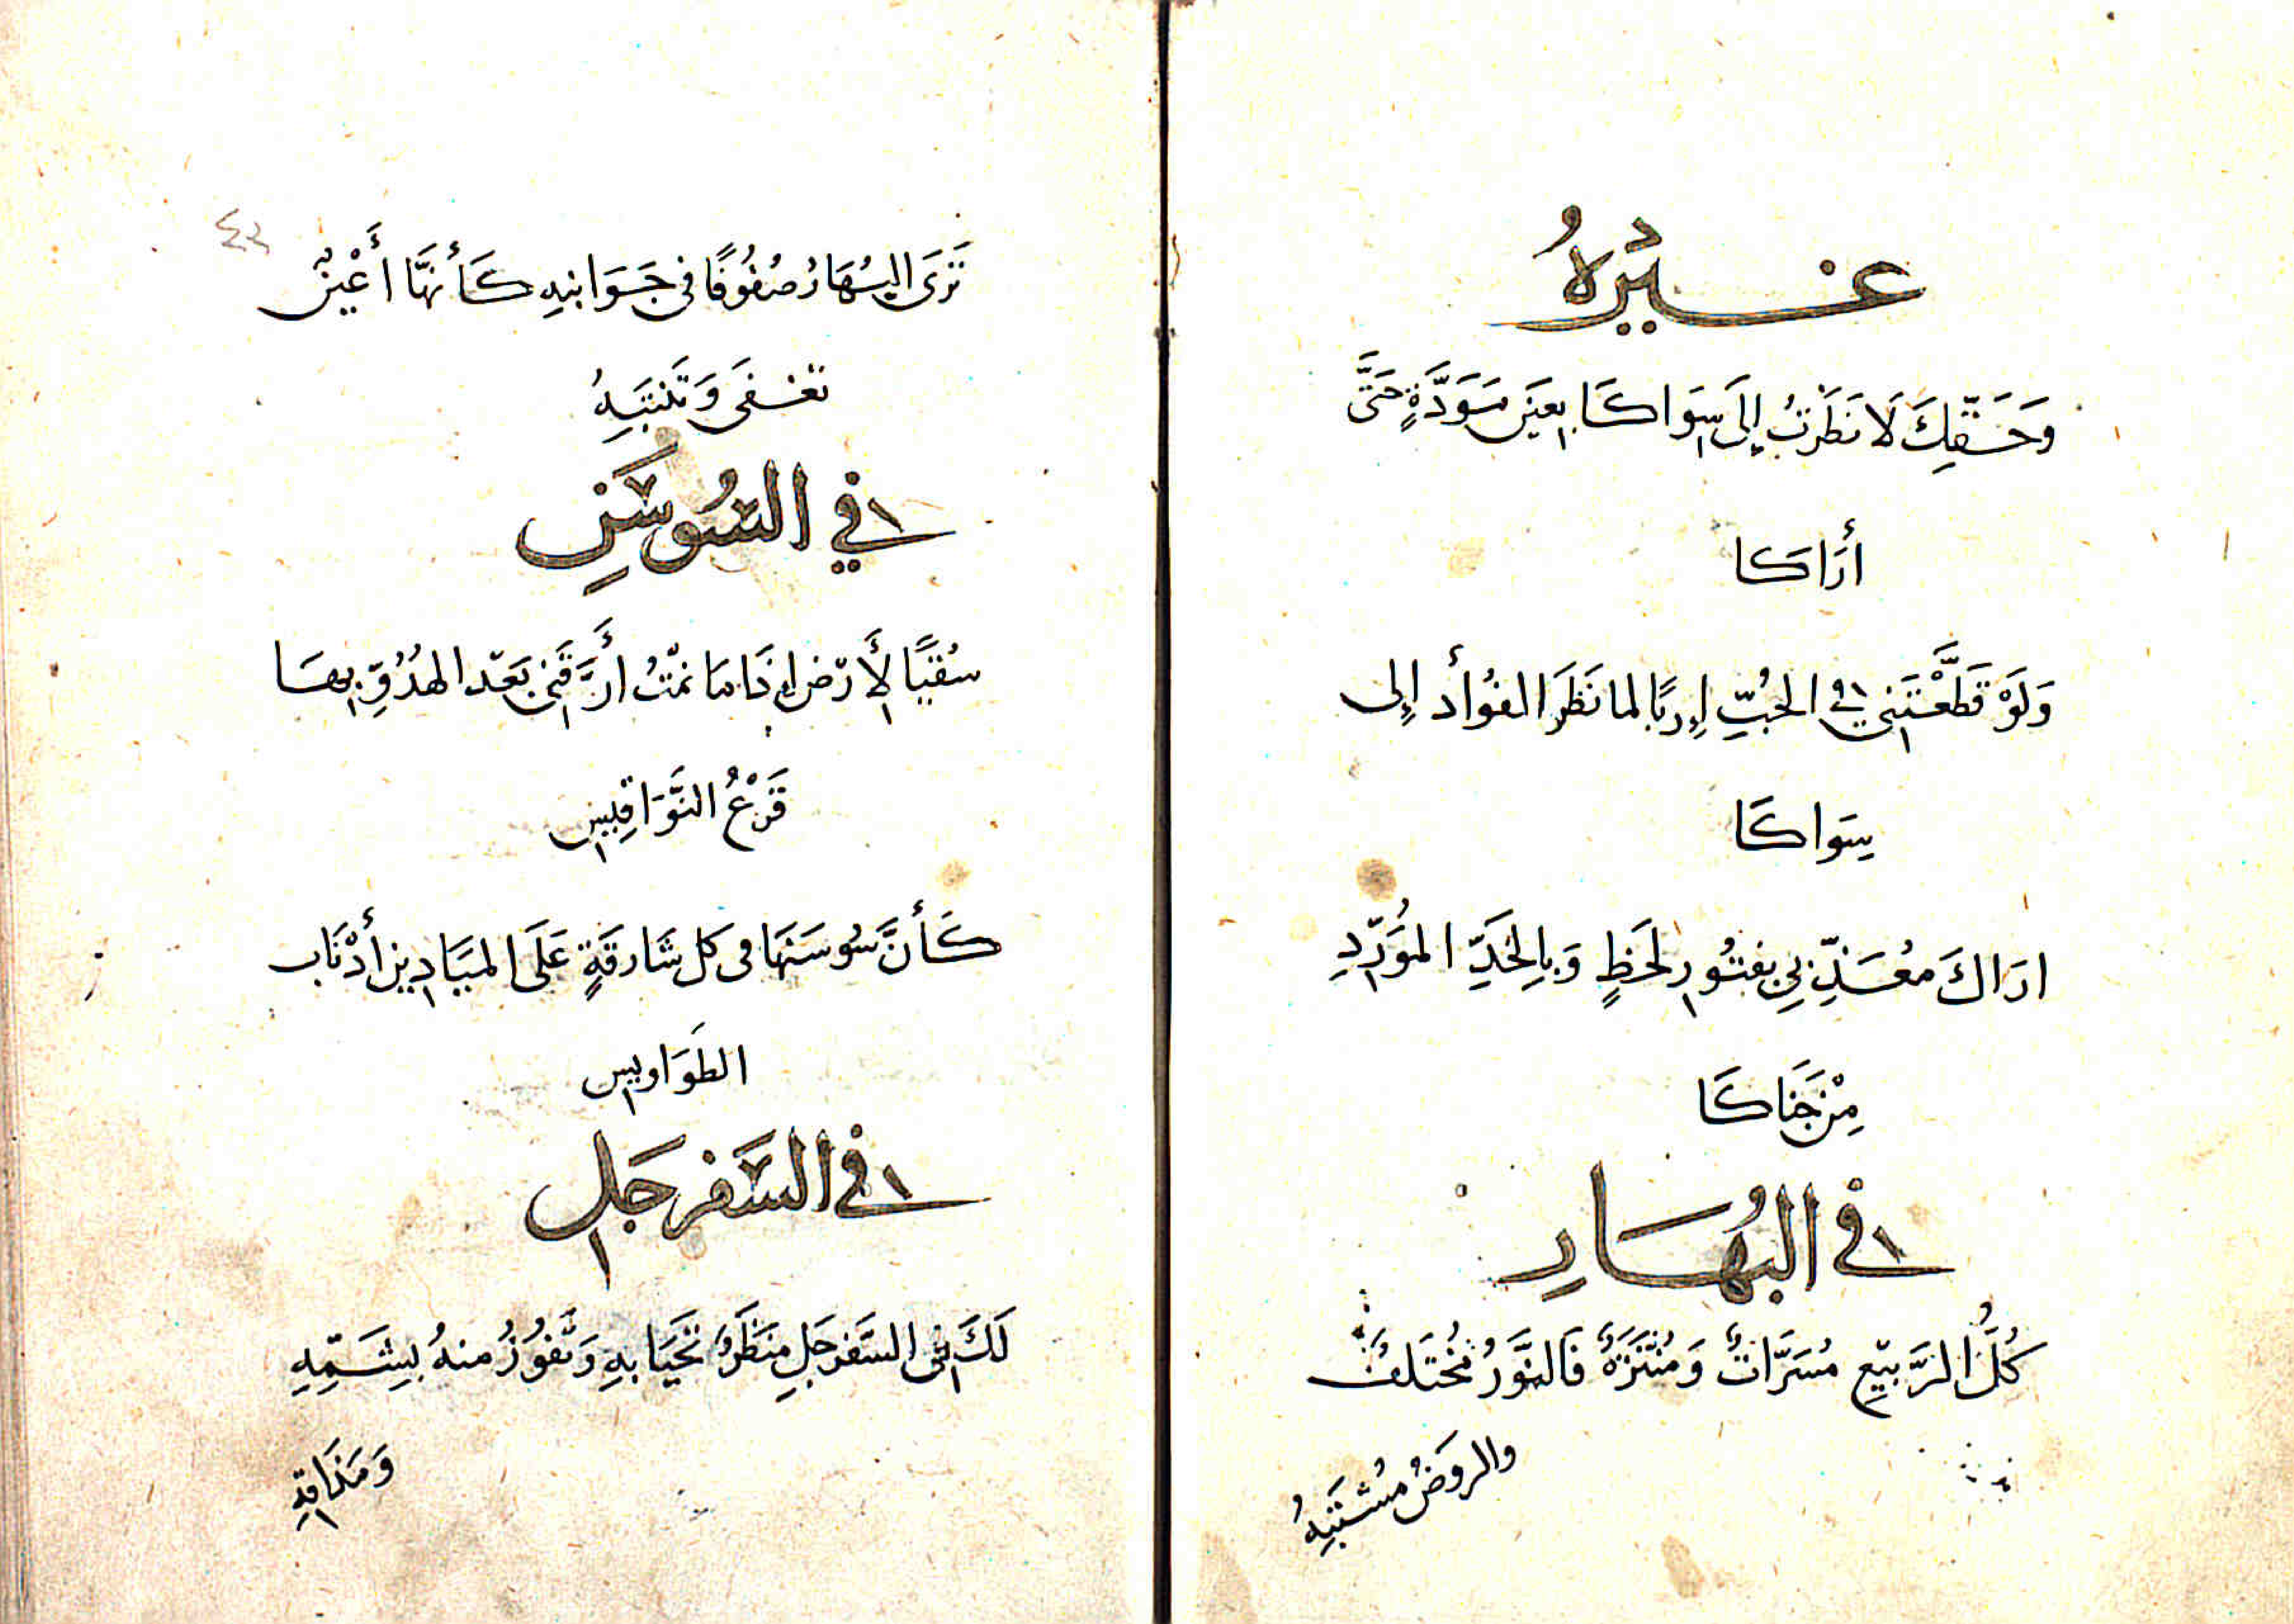 غيره
وَحَقِّكَ لَا نَظَرْتُ إِلَى سِوَاكَا بِعَيْنِ مَوَدَّةٍ حَتَّى
أَرَاكَا
وَلَوْ قَطَّعْتَنِي فِي الحُبِّ إِرَبًا لما نَظَرَ الفُؤَأد إِلى
سِوَاكَا
ارَاكَ مُعَذِّبِي بِفُتُورِ لَحَظٍ وَبِالخَدِّ المُوَرَّدِ
مِنْ جَنَاكَا
في البُهَارِ
كُلُّ الرَّبِيّعِ مُسَرَّاتٌ وَمُنْتَزَهٌ فَالنَّوَرُ مُخْتَلِفٌ
والروَضُ مُشْتَبِهُ
٤٢
تَرَى البُهَارُ صُفُوفًا فِي جَوَانِبِهِ كَأَنَّهَا أَعْيُنٌ
تَغْفَى وَتَنْتَبِهُ
في السُّوسَنِ
سُقيًا لِأَرْضٍ إِذَا مَا نمْتُ أَرَّقَنِي بَعْدَ الهُدُوِّ بِهَا
قَرْعُ النَّوَاقِيسِ
كَأَنَّ سُوسَنَهَا فى كل شَارِقَةٍ عَلَى المَيَادِينِ أَذْنَاب
الطَوَاوِيسِ
في السَّفَرجَلِ
لَكَ فِي السَّفَرجَلِ مَنظَرٌ تَحْيَا بِهِ وَتَفُوزُ منهُ بِشَمِّهِ
وَمَذَاقِهِ